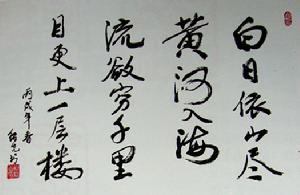 白日依山尽
黄河入海
流欲穷千里
目更上一层楼
丙戌年春